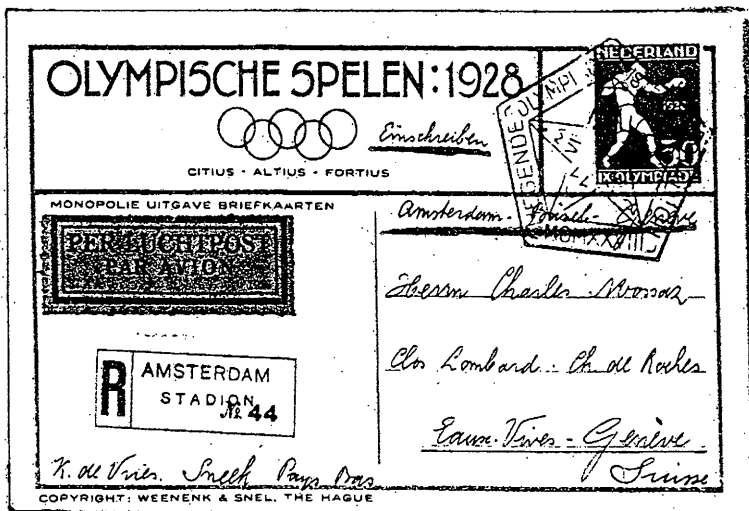 OLYMPISCHE SPELEN: 1928
Einschreiben
CITIUS - ALTIUS - FORTIUS
NEDERLAND
1928
30
IX OLYMPIADE
OLYMPI
MCMXXVIII
MONOPOLIE UITGAVE BRIEFKAARTEN
PER LUCHTPOST
PAR AVION
Amsterdam - Genève
Herrn Charles
Clos Lombard - Ch de Roches
Eaux-Vives - Genève.
Suisse
R
AMSTERDAM
STADION
№ 44
K. de Vries. Sneek Pays Bas
COPYRIGHT: WEENENK & SNEL, THE HAGUE